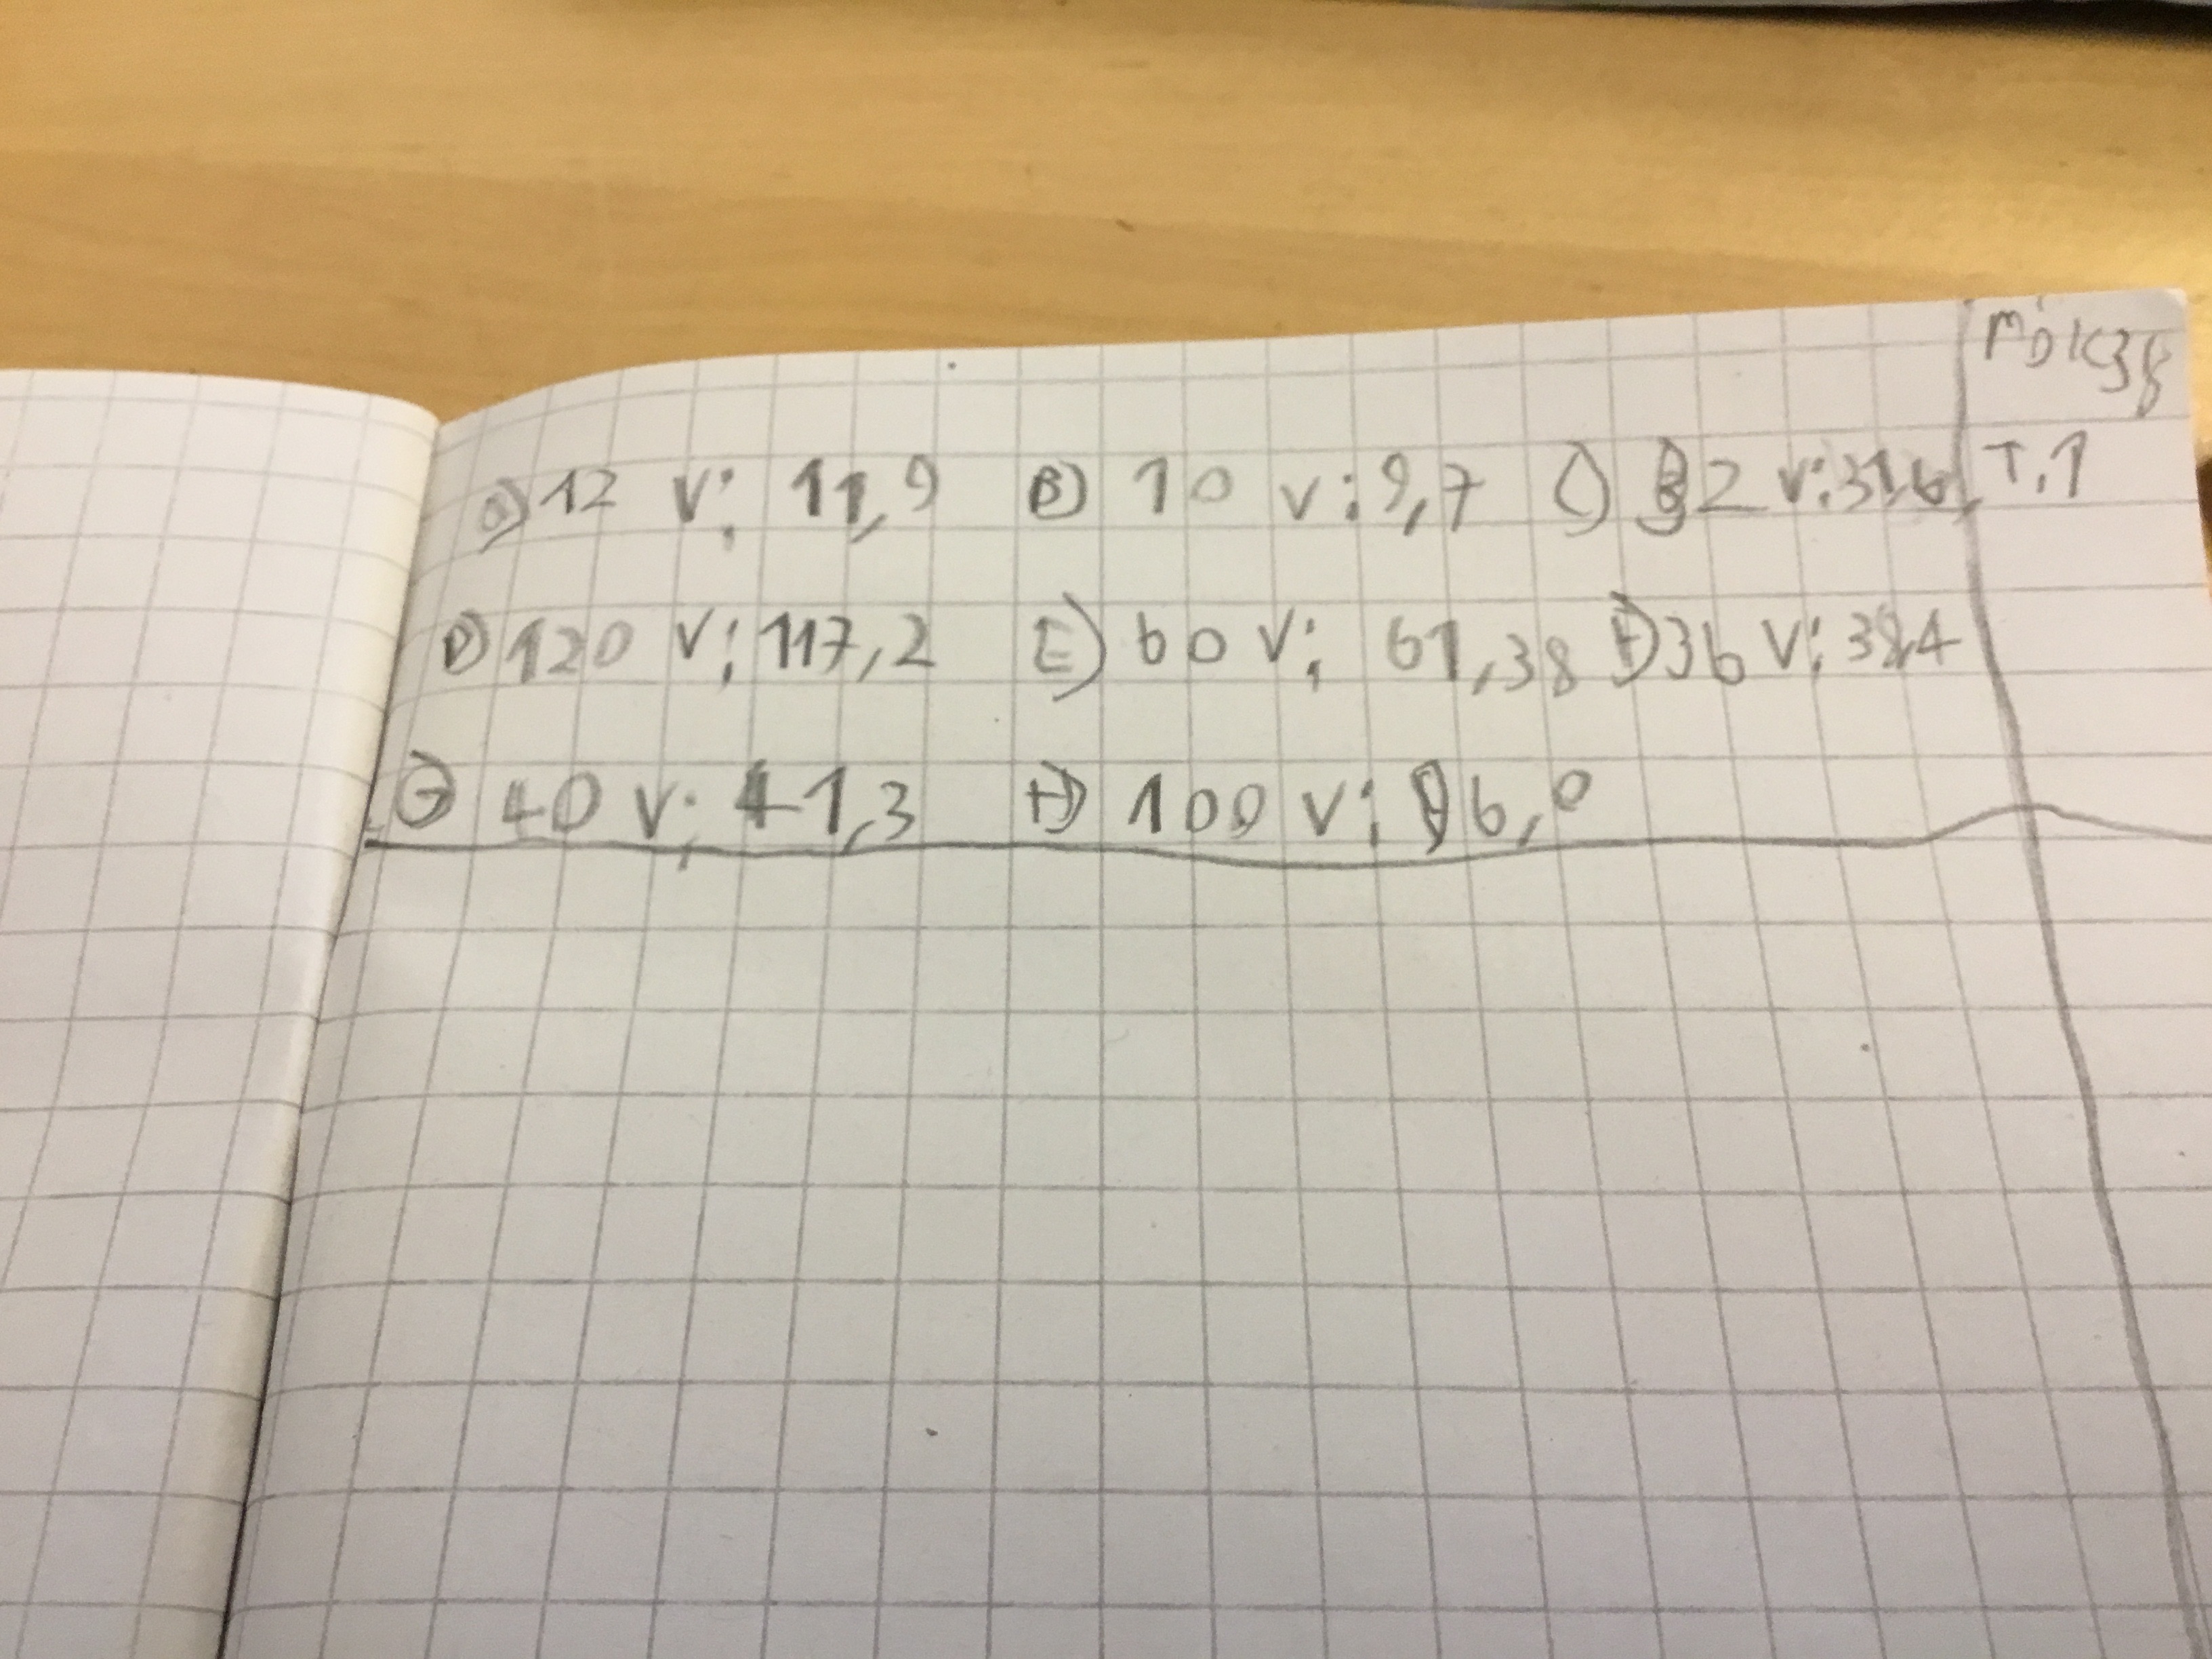 a) 12 V: 11,9 B) 10 V: 9,7 C) 32 V: 31,6
T.1
D) 120 V: 117,2 E) 60 V: 61,38 F) 36 V: 38,4
G) 40 V: 41,3 H) 100 V: 96,0